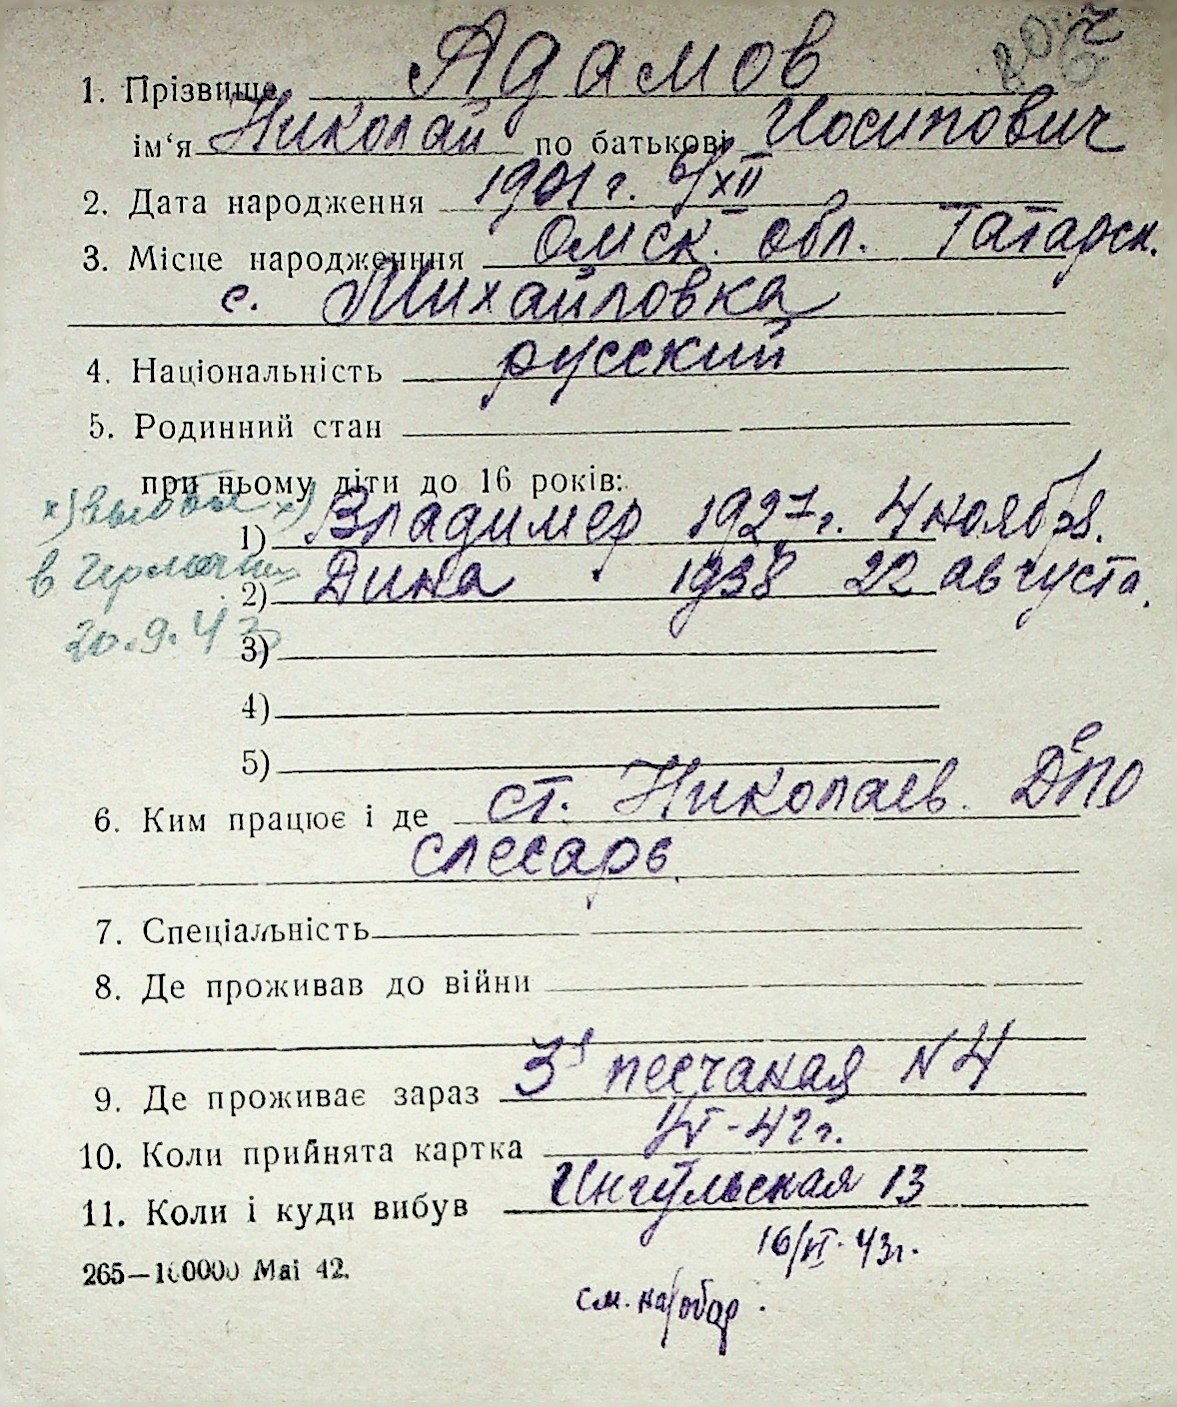 1. Прізвище Адамов
ім‘я Николай по батькові Иосипович
2. Дата народження 1901 г. 6/XII
3. Місце народженння Омск. обл. Татарск.
с. Михайловка
4. Національність русский
5. Родинний стан
при ньому діти до 16 років:
х) выбыл х)
1) Владимер 1927 г. 4 ноября.
в Германию
2) Дина 1938 22 августа.
20.9.43
3)
4)
5)
6. Ким працює і де ст. Николаев. Депо
слесарь.
7. Спеціальність
8. Де проживав до війни
9. Де проживає зараз 3я песчаная N 4
10. Коли прийнята картка -42 г.
11. Коли і куди вибув Ингульская 13
16/VI-43 г.
265—100000 Mai 42.
см. на обор.